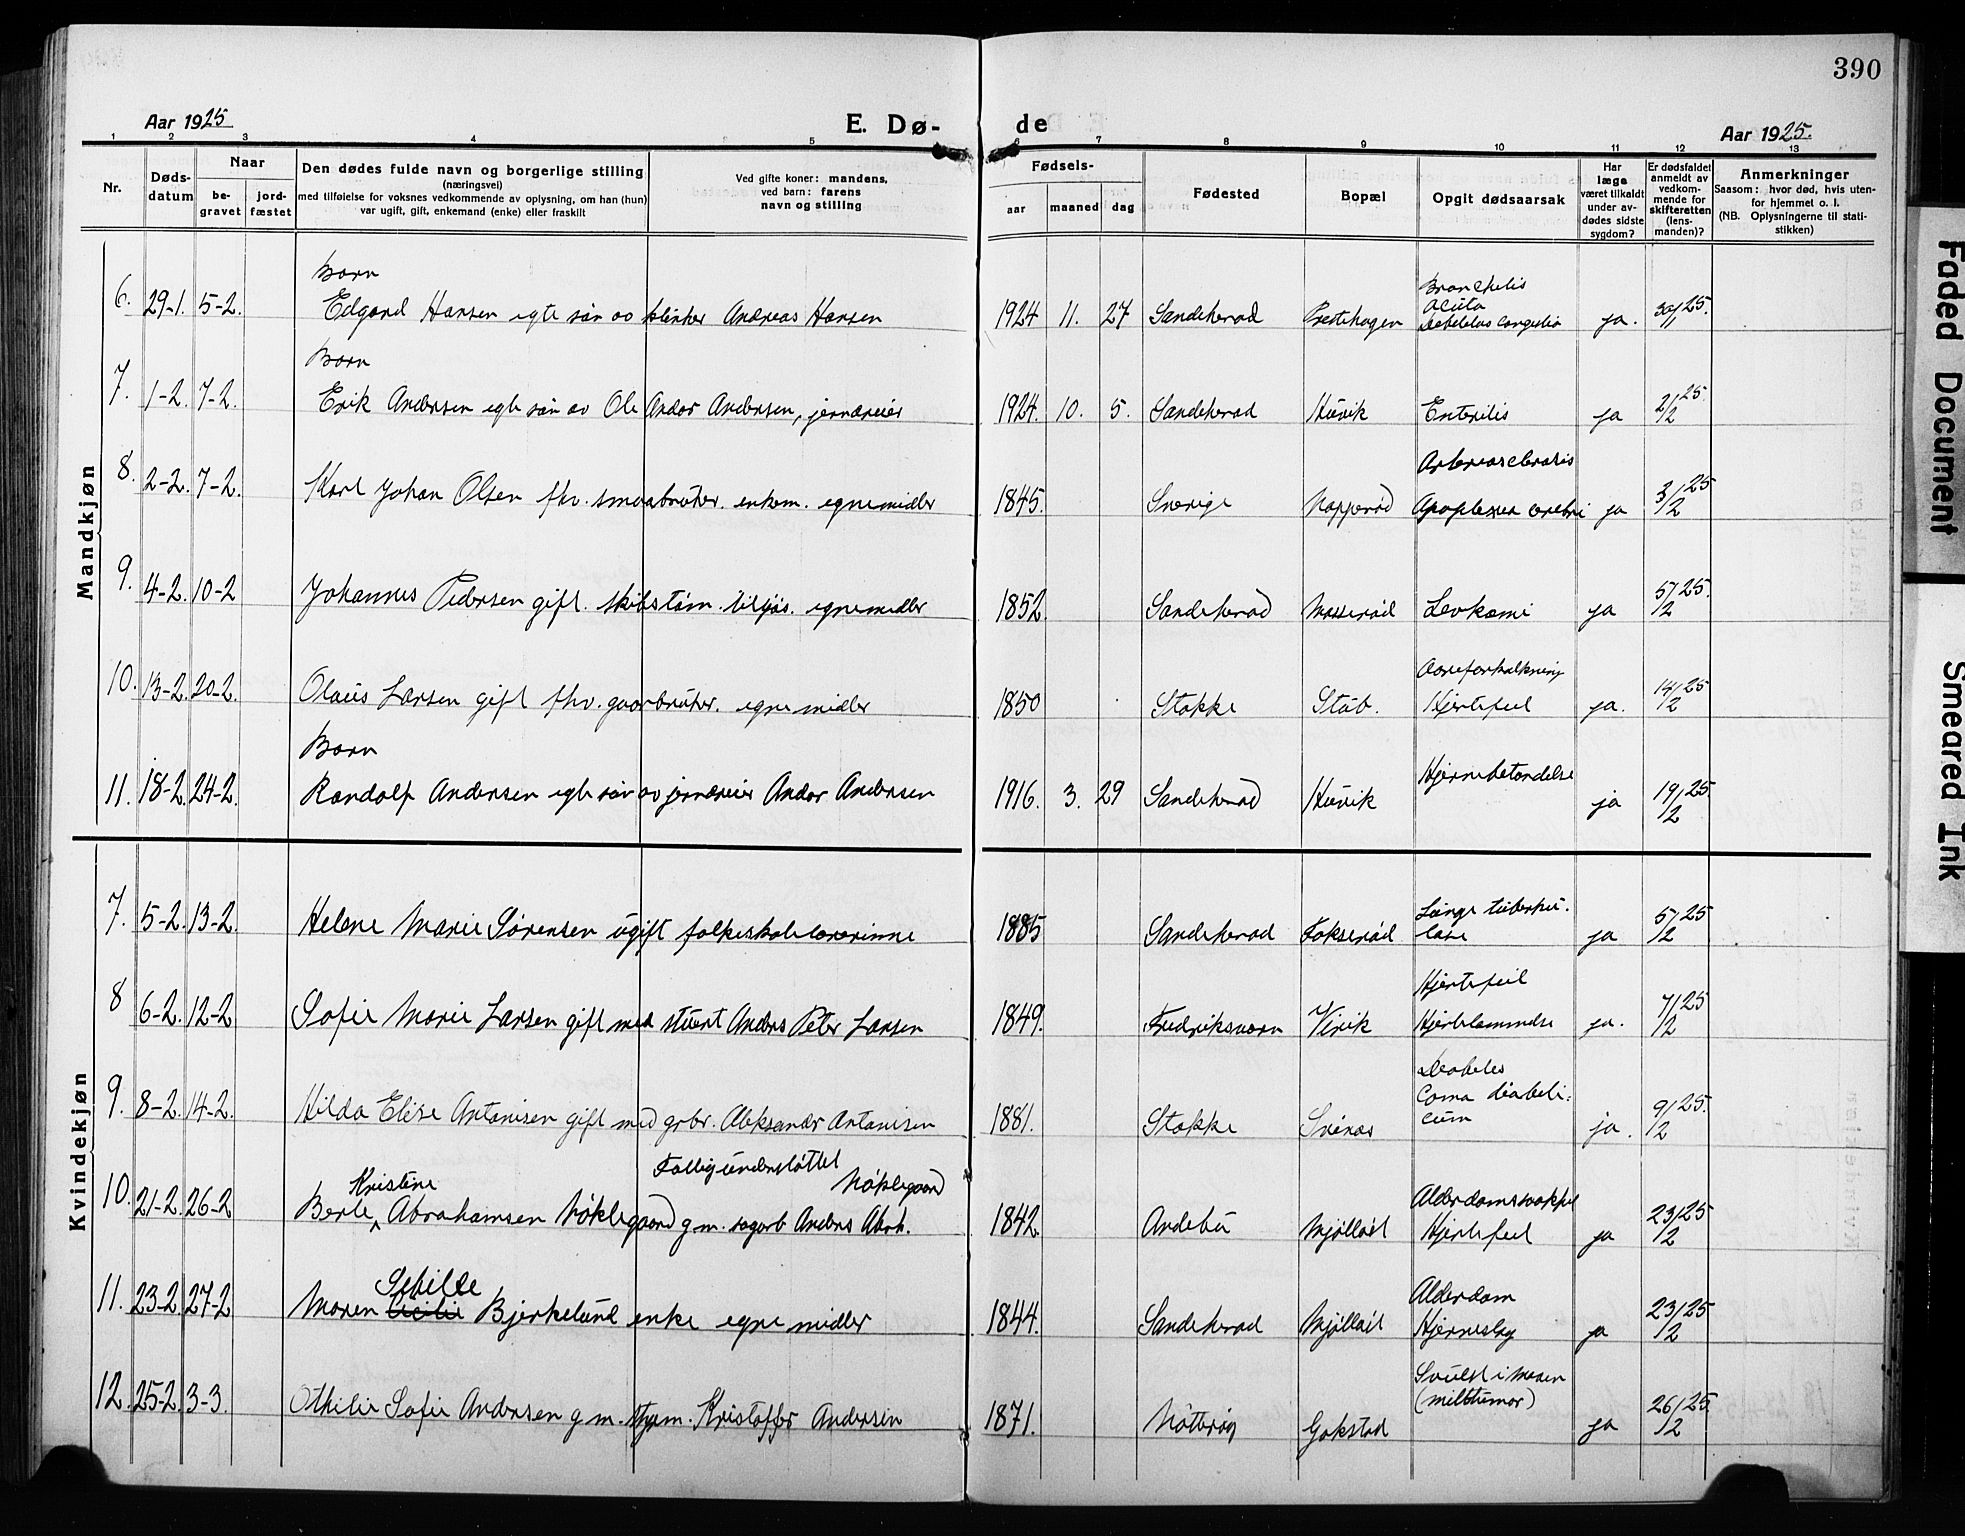 390
Aar 1925
E. Dø-
de
Aar 1925.
1 2 3 4 5 6 7 8 9 10 11 12 13
Nr.
Døds-
datum
Naar
be-
gravet
jord-
fæstet
Den dødes fulde navn og borgerlige stilling
(næringsvei)
med tilføielse for voksnes vedkommende av oplysning, om han (hun)
var ugift, gift, enkemand (enke) eller fraskilt
Ved gifte koner: mandens,
ved barn: farens
navn og stilling
Fødsels-
aar
maaned
dag
Fødested
Bopæl
Opgit dødsaarsak
Har
læge
været tilkaldt
under av-
dødes sidste
sygdom?
Er dødsfaldet
anmeldt av
vedkom-
mende for
skifteretten
(lens-
manden)?
Anmerkninger
Saasom: hvor død, hvis uten-
for hjemmet o. l.
(NB. Oplysningerne til stati-
stikken)
Mandkjøn
Barn
Bronchitis
acuta
6. 29-1. 5-2. Edgard Hansen egte søn av klinker Andreas Hansen 1924 11. 27 Sandeherad Prestehagen ja. 30/1 25.
Barn
7. 1-2. 7-2. Erik Andersen egte søn av Ole Andor Andersen, jerndreier 1924. 10. 5. Sandeherad Huvik Enteritis ja 2/2 25.
Arteriosclerosis
8. 2-2. 7-2. Karl Johan Olsen fhv. smaabruker. enkem. egne midler 1845. Sverige Napperød Apoplexia cerebri ja 3/2 25
9. 4-2. 10-2 Johannes Pedersen gift. skibstøm. tilsjøs. egne midler 1852. Sandeherad Mosserød Levkæmi ja 5/2 25.
Aareforkalkning
10. 13-2. 20-2. Olaus Larsen gift fhv. gaarbruker. egne midler 1850 Stokke Stub. Hjertefeil ja. 14/2 25
Barn
Hjernebetændelse
11. 18-2. 24-2. Randolf Andersen egte søn av jerndreier Andor Andersen 1916. 3. 29 Sandeherad Huvik ja 19/2 25.
Kvindekjøn
Lunge tuberku-
7. 5-2. 13-2. Helene Marie Sørensen ugift folkeskolelærerinne 1885 Sandeherad Fokserød løse ja 5/2 25
Hjertefeil
8 6-2. 12-2 Sofie Marie Larsen gift med stuert Anders Peter Larsen 1849. Fredriksværn Virik Hjertelammelse ja. 7/2 25
Diabetes
Coma diabeti-
9. 8-2. 14-2. Hilda Elise Antonisen gift med grbr. Aleksander Antonisen 1881. Stokke cum ja. 9/2 25.
Kristine Fattigunderstøttet Nøklegaard
Alderdomssvakhet
10. 21-2. 26-2 Berte Abrahamsen Nøklegaard g. m. sagarb Anders Abrh. 1842. Andebu Mjølløst Hjertefeil ja 23/2 25
Sehilde
Alderdom
11. 23-2. 27-2 Maren Cicilie Bjerkelund enke egne midler 1844. Sandeherad Mjølløst Hjerneslag ja 23/2 25
Svulst i maven
(milttumor)
12. 25-2. 3-3. Othilie Sofie Andersen g. m. styrm. Kristoffer Andersen 1871. Nøtterøy Gokstad ja 26/2 25
Faded Document
Smeared Ink